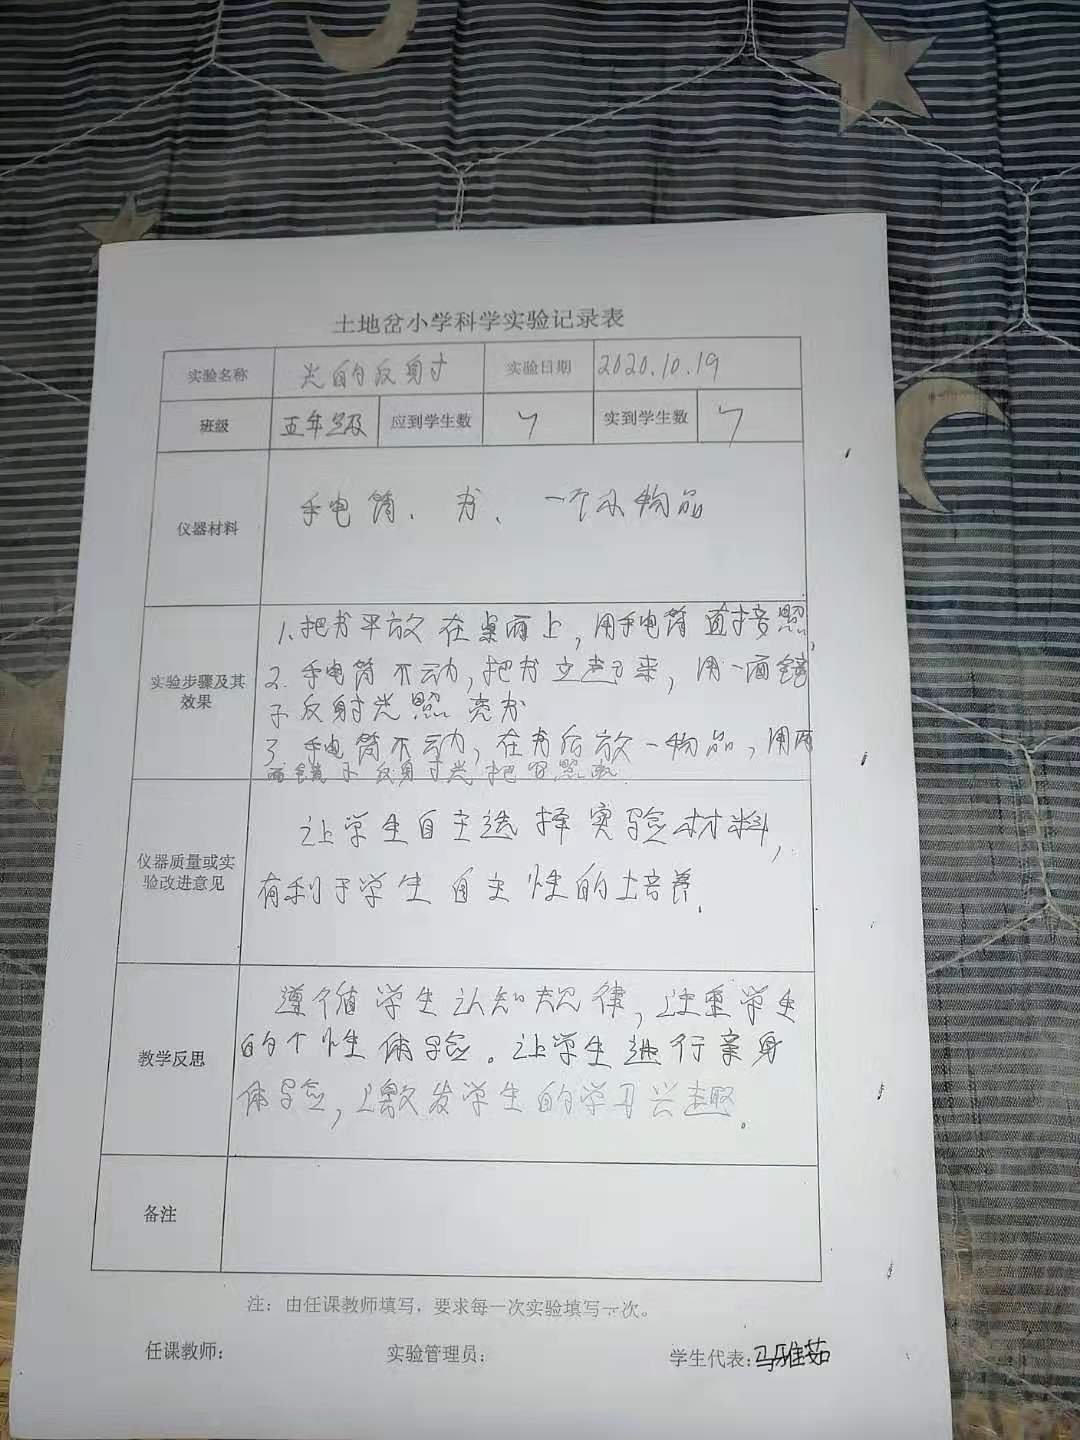 土地岔小学科学实验记录表
实验名称 光的反射 实验日期 2020.10.19
班级 五年级 应到学生数 7 实到学生数 7
仪器材料 手电筒、书、一个小物品
实验步骤及其效果
1.把书平放在桌面上,用手电筒直接照,
2.手电筒不动,把书立起来,用一面镜
子反射光照亮书
3 手电筒不动,在书后放一物品,用两
面镜子反射光把它照亮.
仪器质量或实验改进意见
让学生自主选择实验材料,
有利于学生自主性的培养.
教学反思
遵循学生认知规律,注重学生
的个性体验。让学生进行亲身
体验,激发学生的学习兴趣。
备注
注:由任课教师填写,要求每一次实验填写一次。
任课教师: 实验管理员: 学生代表:马雅茹